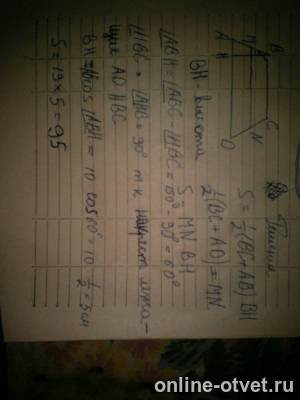 B
M
A
H
C
N
D
Решение
S = 1/2 (BC+AB) BH
1/2 (BC + AD) = MN
BH - высота
S = MN BH
∠ABH = ∠ABC - ∠HBC = 150° - 90° = 60°
∠HBC = ∠AHB = 90° т к накрест лежа-
щие AD || BC
BH = 10 cos ∠ABH = 10 cos 60° = 10 1/2 = 5 см
S = 19 × 5 = 95
online-otvet.ru